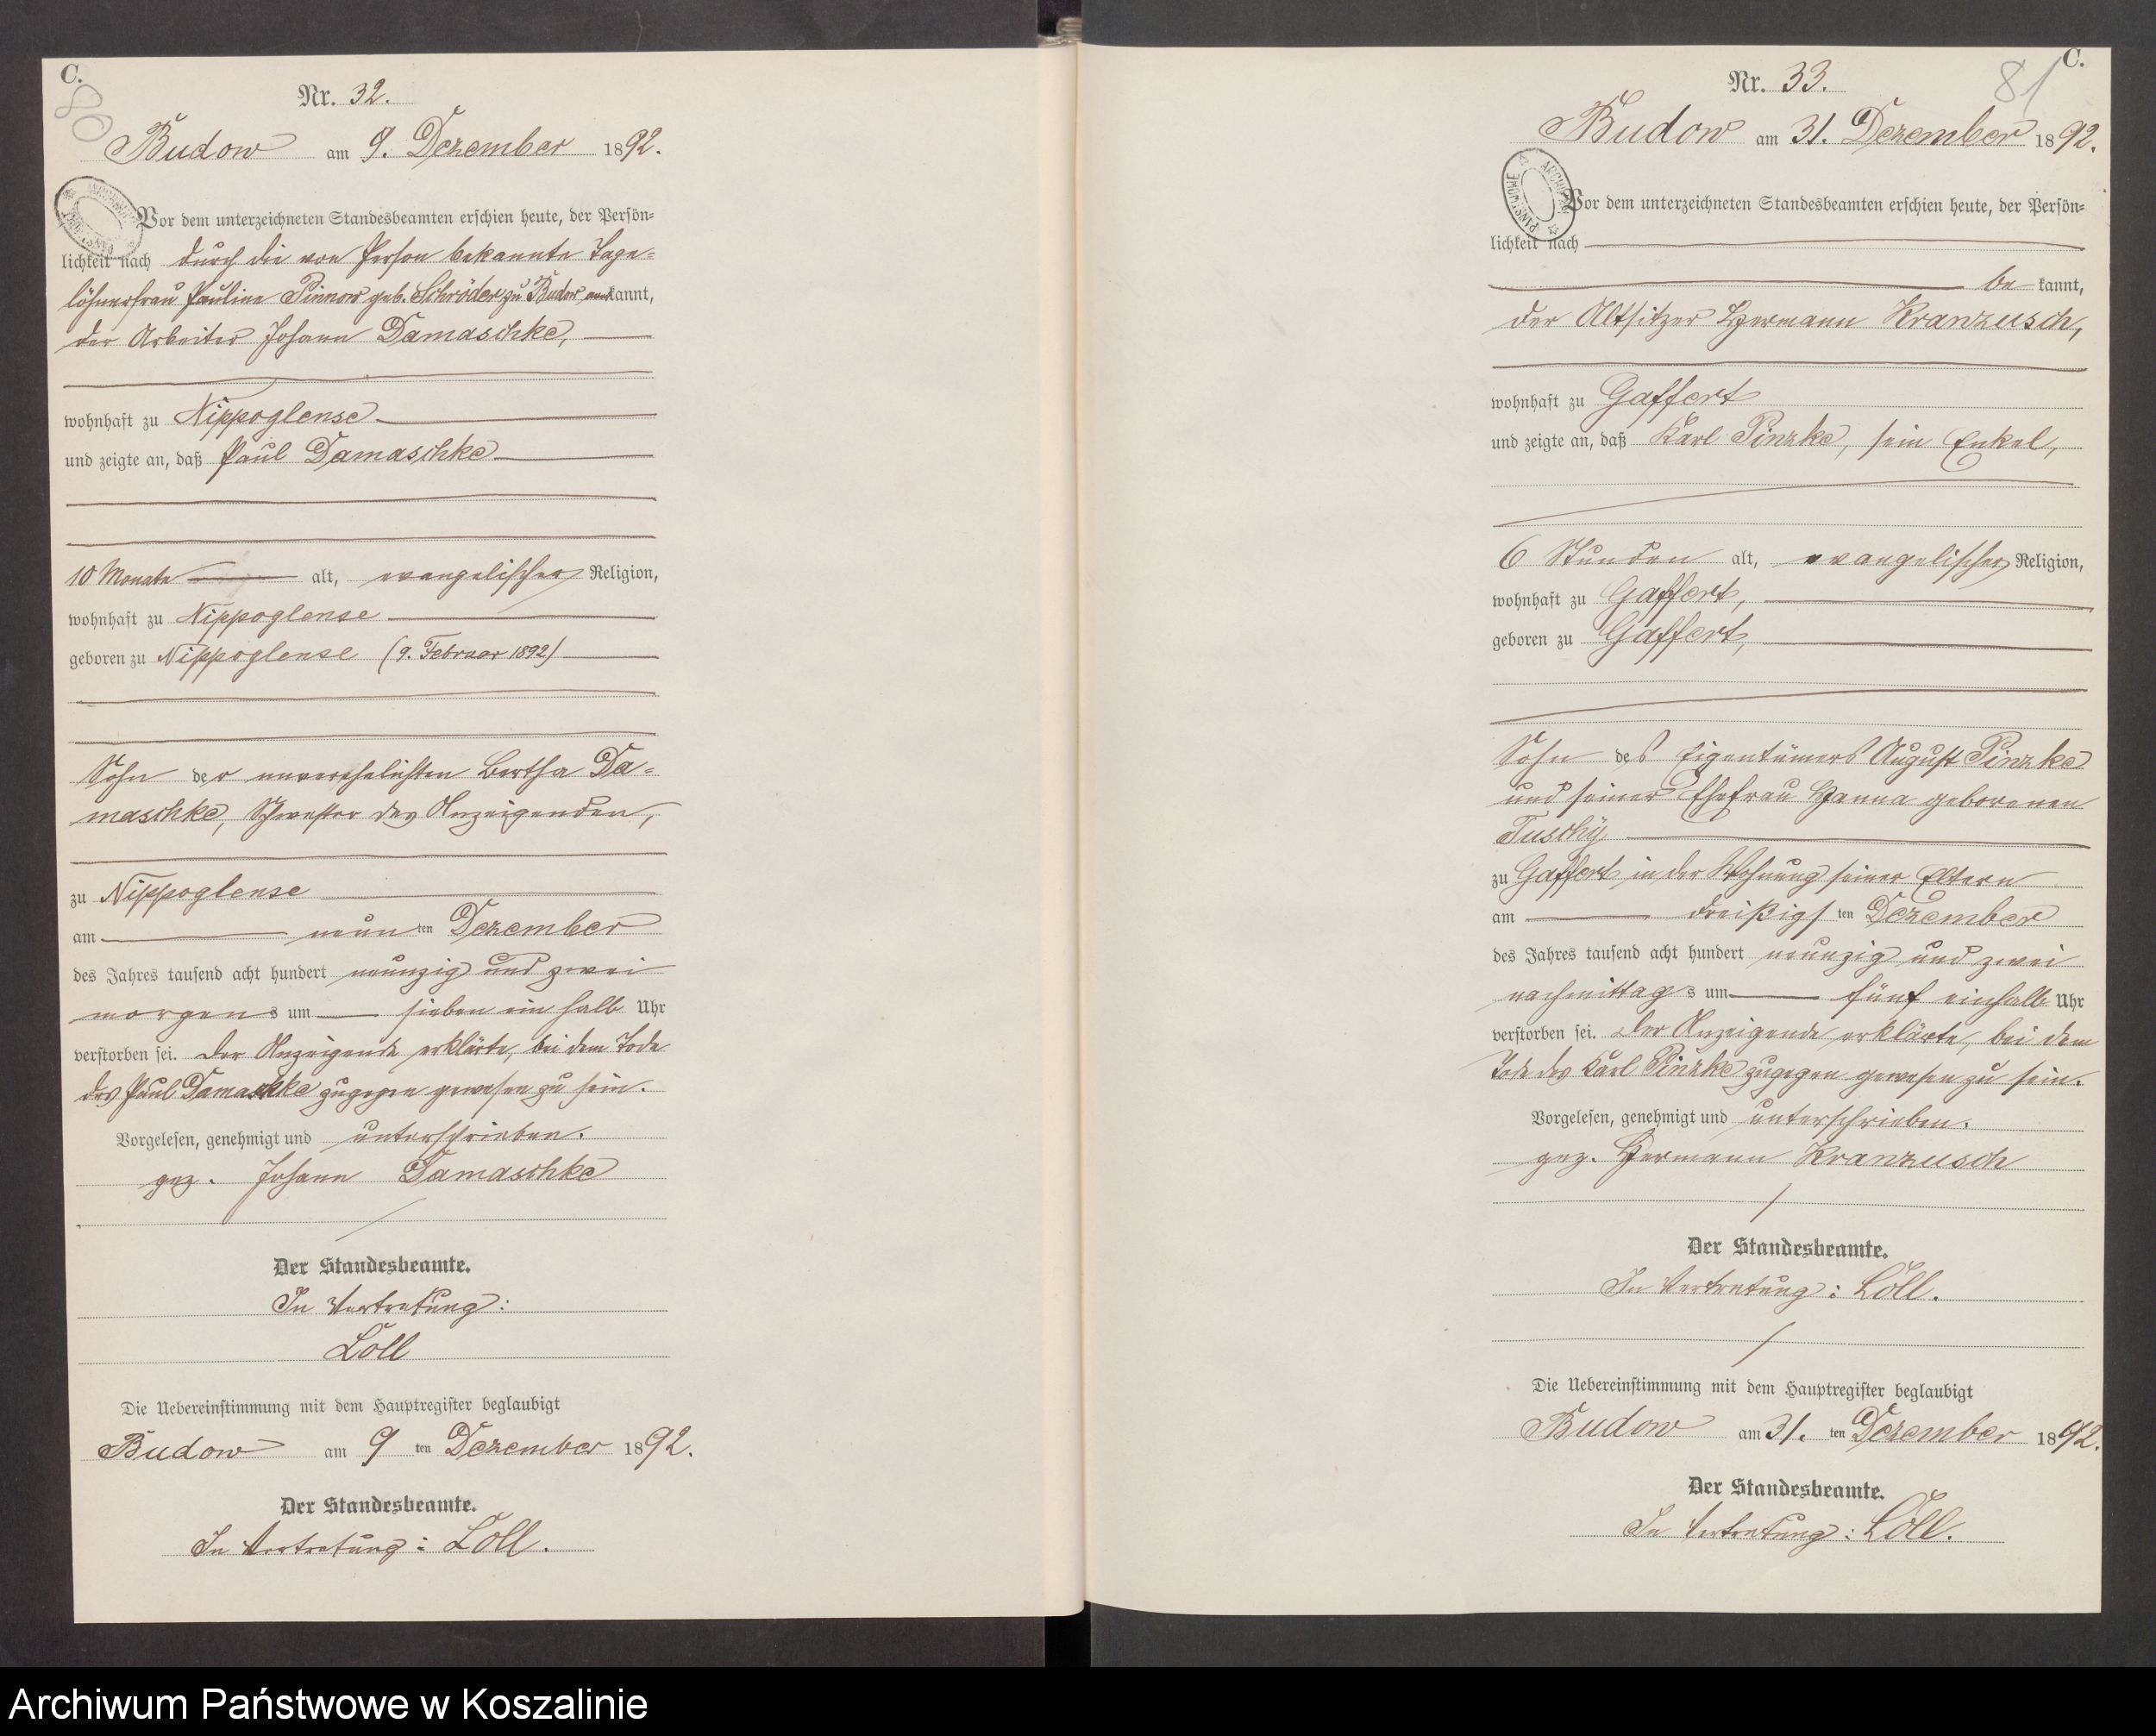 C.
80
Nr. 32.
Budow am 9. Dezember 1892.
Vor dem unterzeichneten Standesbeamten erschien heute, der Persön=
lichkeit nach durch die von Person bekannte Tage=
löhnerfrau Pauline Pinnow geb. Schröder zu Budow anerkannt,
der Arbeiter Johann Damaschke,
wohnhaft zu Nippoglense
und zeigte an, daß Paul Damaschke
10 Monate alt, evangelischer Religion,
wohnhaft zu Nippoglense
geboren zu Nippoglense (9. Februar 1892)
Sohn der unverehelichten Bertha Da=
maschke, Schwester des Anzeigenden,
zu Nippoglense
am neunten Dezember
des Jahres tausend acht hundert neunzig und zwei
morgens um sieben ein halb Uhr
verstorben sei. Der Anzeigende erklärte, bei dem Tode
des Paul Damaschke zugegen gewesen zu sein.
Vorgelesen, genehmigt und unterschrieben.
gez. Johann Damaschke
Der Standesbeamte.
In Vertretung:
Löll
Die Uebereinstimmung mit dem Hauptregister beglaubigt
Budow am 9 ten Dezember 1892.
Der Standesbeamte.
In Vertretung: Löll.
C.
81
Nr. 33.
Budow am 31. Dezember 1892.
ARCHIWUM PAŃSTWOWE
Vor dem unterzeichneten Standesbeamten erschien heute, der Persön=
lichkeit nach
be kannt,
der Altsitzer Hermann Kranzusch,
wohnhaft zu Gaffert
und zeigte an, daß Karl Pinzke, sein Enkel,
6 Stunden alt, evangelischer Religion,
wohnhaft zu Gaffert,
geboren zu Gaffert,
Sohn des Eigentümers August Pinzke
und seiner Ehefrau Hanna geborenen
Tuschÿ
zu Gaffert in der Wohnung seiner Eltern
am dreißigsten Dezember
des Jahres tausend acht hundert neunzig und zwei
nachmittags um fünf einhalb Uhr
verstorben sei. Der Anzeigende erklärte, bei dem
Tode des Karl Pinzke zugegen gewesen zu sein.
Vorgelesen, genehmigt und unterschrieben.
gez. Hermann Kranzusch
Der Standesbeamte.
In Vertretung: Löll.
Die Uebereinstimmung mit dem Hauptregister beglaubigt
Budow am 31. ten Dezember 1892.
Der Standesbeamte.
In Vertretung: Löll.
Archiwum Państwowe w Koszalinie